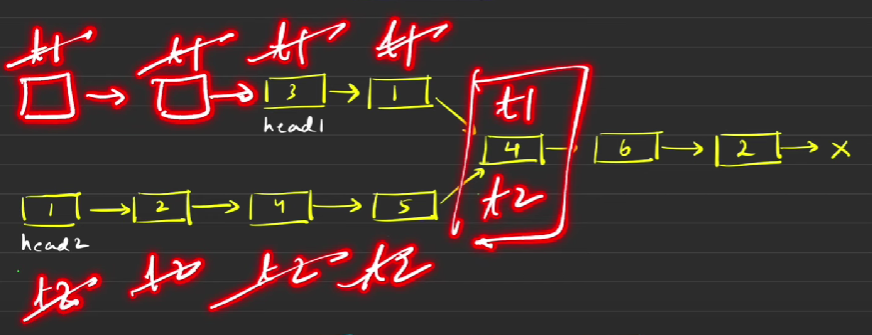 t1 t1 t1 t1
3 1 t1
head1
4 6 2 x
1 2 4 5 t2
head2
t2 t2 t2 t2